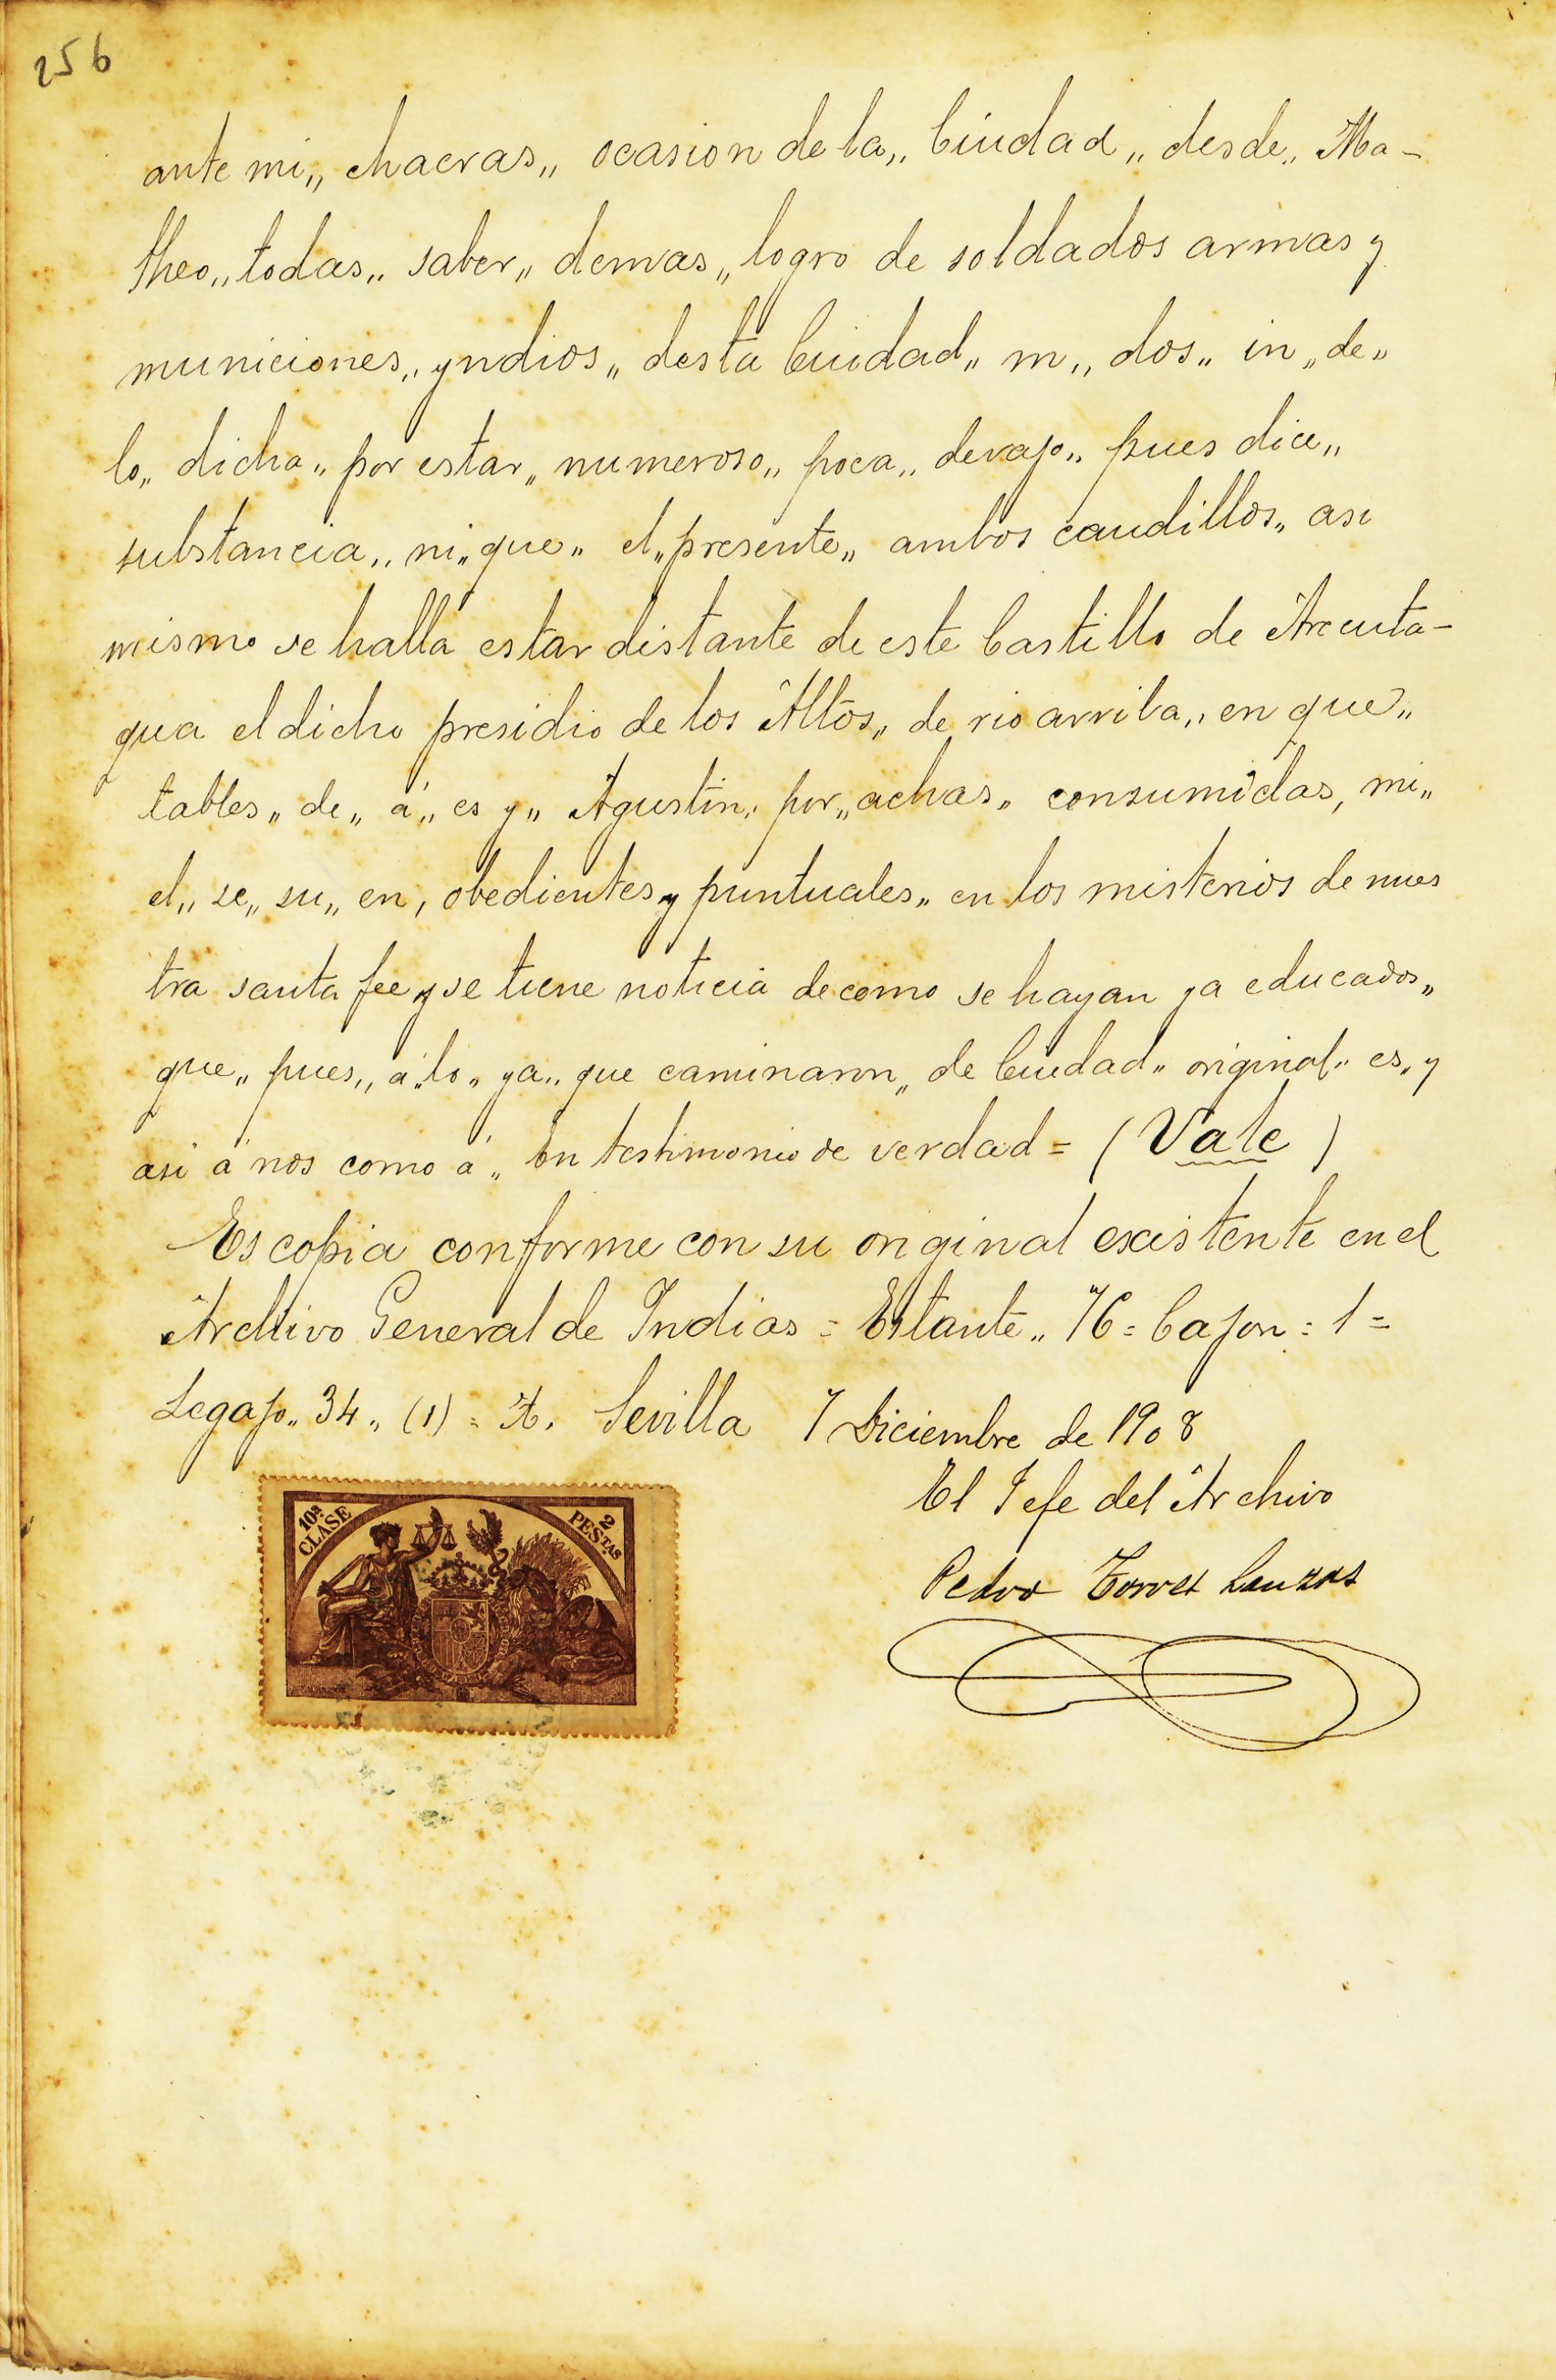 256
ante mi,, chacras,, ocasion de la,, Ciudad,, desde,, Ma-
theo,, todas,, saber,, demas,, logro de soldados armas y
municiones,, yndios,, desta Ciudad,, m,, dos,, in,, de,,
lo,, dicha,, por estar,, numeroso,, poca,, devajo,, pues dice,,
substancia,, ni,, que,, el,, presente,, ambos caudillos,, asi
mismo se halla estar distante de este Castillo de Arauta-
gua el dicho presidio de los Altos,, de rio arriba,, en que,,
tables,, de,, á,, es y,, Agustin,, por,, achas,, consumidas, mi,,
el,, se,, su,, en, obedientes y puntuales,, en los misterios de nues
tra santa fee y se tiene noticia de como se hayan ya educados,,
que,, pues,, á,, lo,, ya,, que caminaron,, de Ciudad,, original,, es,, y
asi á nos como á,, En testimonio de verdad = (Vale)
Es copia conforme con su original existente en el
Archivo General de Indias = Estante,, 76 = Cajon = 1 =
Legajo,, 34,, (1) = Sevilla 7 Diciembre de 1908
El Jefe del Archivo
Pedro Torres Lanzas
10ª CLASE
2 PESTAS